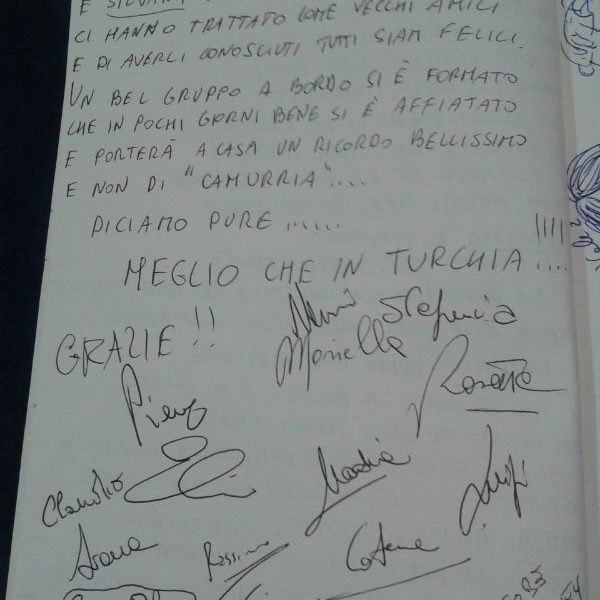 E SILVANA
CI HANNO TRATTATO COME VECCHI AMICI
E DI AVERLI CONOSCIUTI TUTTI SIAM FELICI.
UN BEL GRUPPO A BORDO SI È FORMATO
CHE IN POCHI GIORNI BENE SI È AFFIATATO
E PORTERÀ A CASA UN RICORDO BELLISSIMO
E NON DI "CAMURRIA"....
DICIAMO PURE ......
MEGLIO CHE IN TURCHIA !!!!....
GRAZIE !!
Stefania
Mariella
Piero
Claudio
Nadia
Luigi